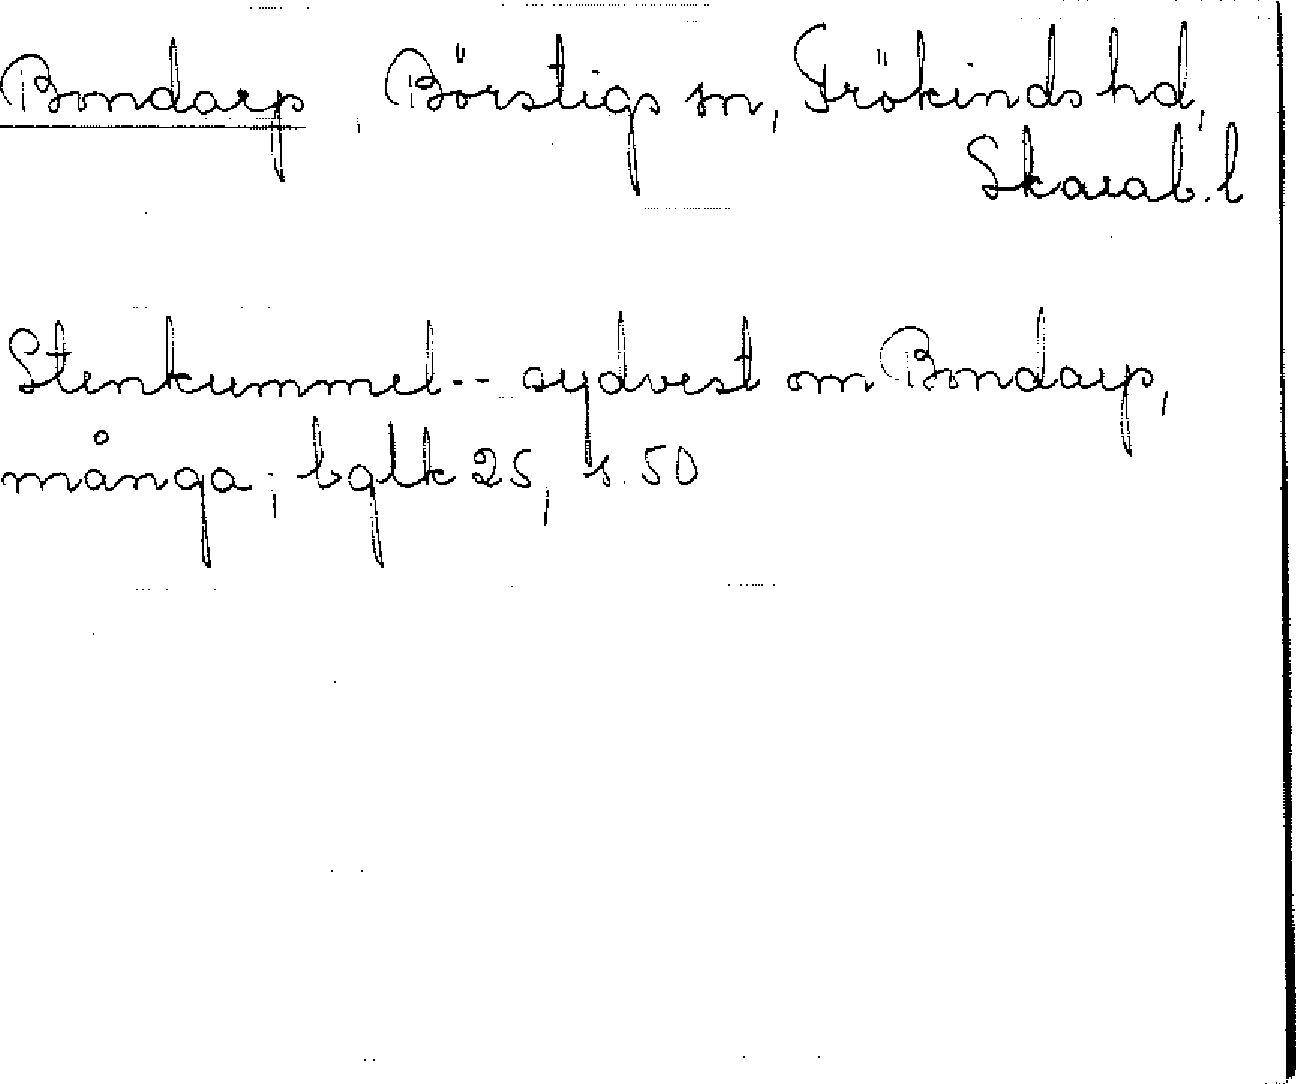 Bondarp, Börstigs sn, Frökinds hd,
Skarab. l
Stenkummel -- sydvest om Bondarp,
många; bglk 25, s. 50